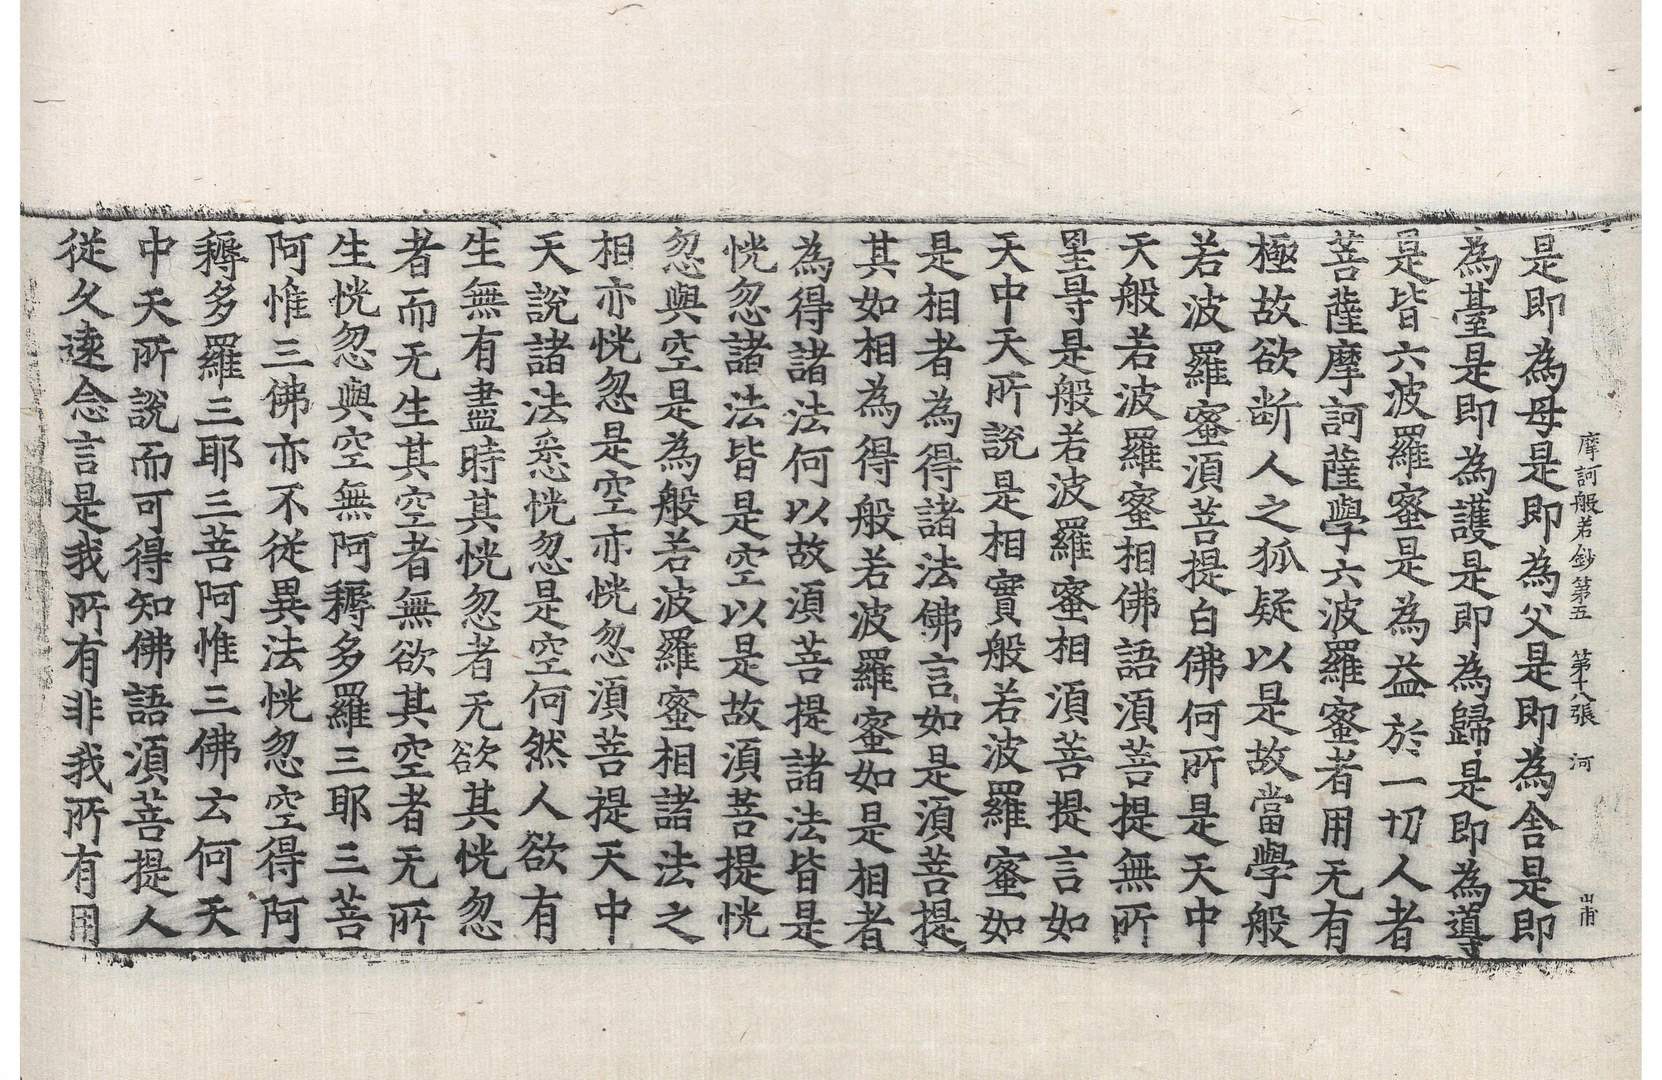 摩訶般若鈔第五 第十八張 河 甫
是即為母是即為父是即為舍是即
為臺是即為護是即為歸是即為導
是皆六波羅蜜是為益於一切人者
菩薩摩訶薩學六波羅蜜者用无有
極故欲断人之狐疑以是故當學般
若波羅蜜湏菩提白佛何所是天中
天般若波羅蜜相佛語湏菩提無所
罣㝵是般若波羅蜜相湏菩提言如
天中天所說是相實般若波羅蜜如
是相者為得諸法佛言如是湏菩提
其如相為得般若波羅蜜如是相者
為得諸法何以故湏菩提諸法皆是
恍忽諸法皆是空以是故湏菩提恍
忽與空是為般若波羅蜜相諸法之
相亦恍忽是空亦恍忽湏菩提天中
天說諸法悉恍忽是空何然人欲有
生無有盡時其恍忽者无欲其恍忽
者而无生其空者無欲其空者无所
生恍忽與空無阿耨多羅三耶三菩
阿惟三佛亦不從異法恍忽空得阿
耨多羅三耶三菩阿惟三佛云何天
中天所說而可得知佛語湏菩提人
從久遠念言是我所有非我所有用